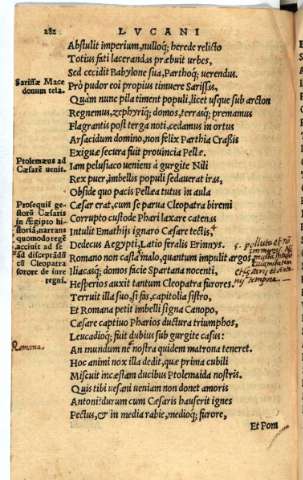 282 LVCANI
Abstulit imperium, nulloq; herede relicto
Totius fati lacerandas præbuit urbes,
Sed cecidit Babylone sua, Parthoq; uerendus.
Sarissæ Mace
donum tela.
Prò pudor eoi propius timuere Sarissas,
Quàm nunc pila timent populi, licet usque sub arcton
Regnemus, zephyriq; domos, terrasq; premamus
Flagrantis post terga noti, cedamus in ortus
Arsacidum domino, non felix Parthia Crassis
Exiguæ secura fuit prouincia Pellæ.
Ptolemæus ad
Cæsarē uenit.
Iam pelusiaco ueniens à gurgite Nili
Rex puer, imbellis populi sedauerat iras,
Obside quo pacis Pellæa tutus in aula
Prosequit ge
storū Cæsaris
in ægipto hi-
storiā, narrans
quomodo reg
accinit ad se
sū discepradā
cū Cleopatra
sorore de iure
regni.
Cæsar erat, cum se parua Cleopatra biremi
Corrupto custode Phari laxare catenas
Intulit Emathijs ignaro Cæsare tectis,
Dedecus Aegypti, Latio feralis Erinnys.
Romano non casta malo, quantum impulit argos
Iliacasq; domos facie Spartana nocenti,
Hesperios auxit tantum Cleopatra furores.
Terruit illa suo, si fas, capitolia sistro,
Et Romana petit imbelli signa Canopo,
Cæsare captiuo Pharios ductura triumphos,
Leucadioq; fuit dubius sub gurgite casus:
Romana.
An mundum ne nostra quidem matrona teneret.
Hoc animi nox illa dedit, quæ prima cubili
Miscuit incæstam ducibus Ptolemaida nostris.
Quis tibi uesani ueniam non donet amoris
Antoni? durum cum Cæsaris hauserit ignes
Pectus, & in media rabie, medioq; furore,
Et Pom